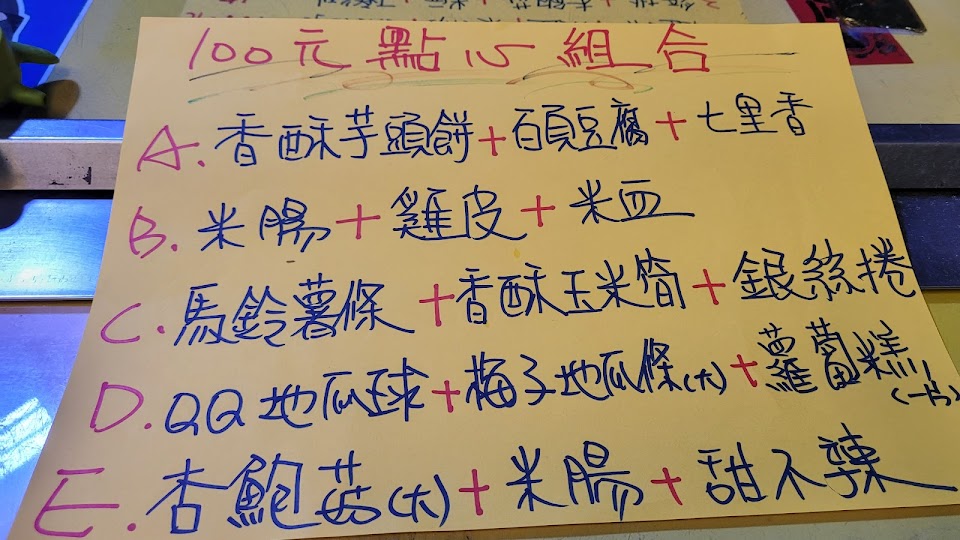 100元點心組合
A. 香酥芋頭餅+百頁豆腐+七里香
B. 米腸+雞皮+米血
C. 馬鈴薯條+香酥玉米筒+銀絲捲
D. QQ地瓜球+梅子地瓜條(大)+蘿蔔糕(一份)
E. 杏鮑菇(大)+米腸+甜不辣